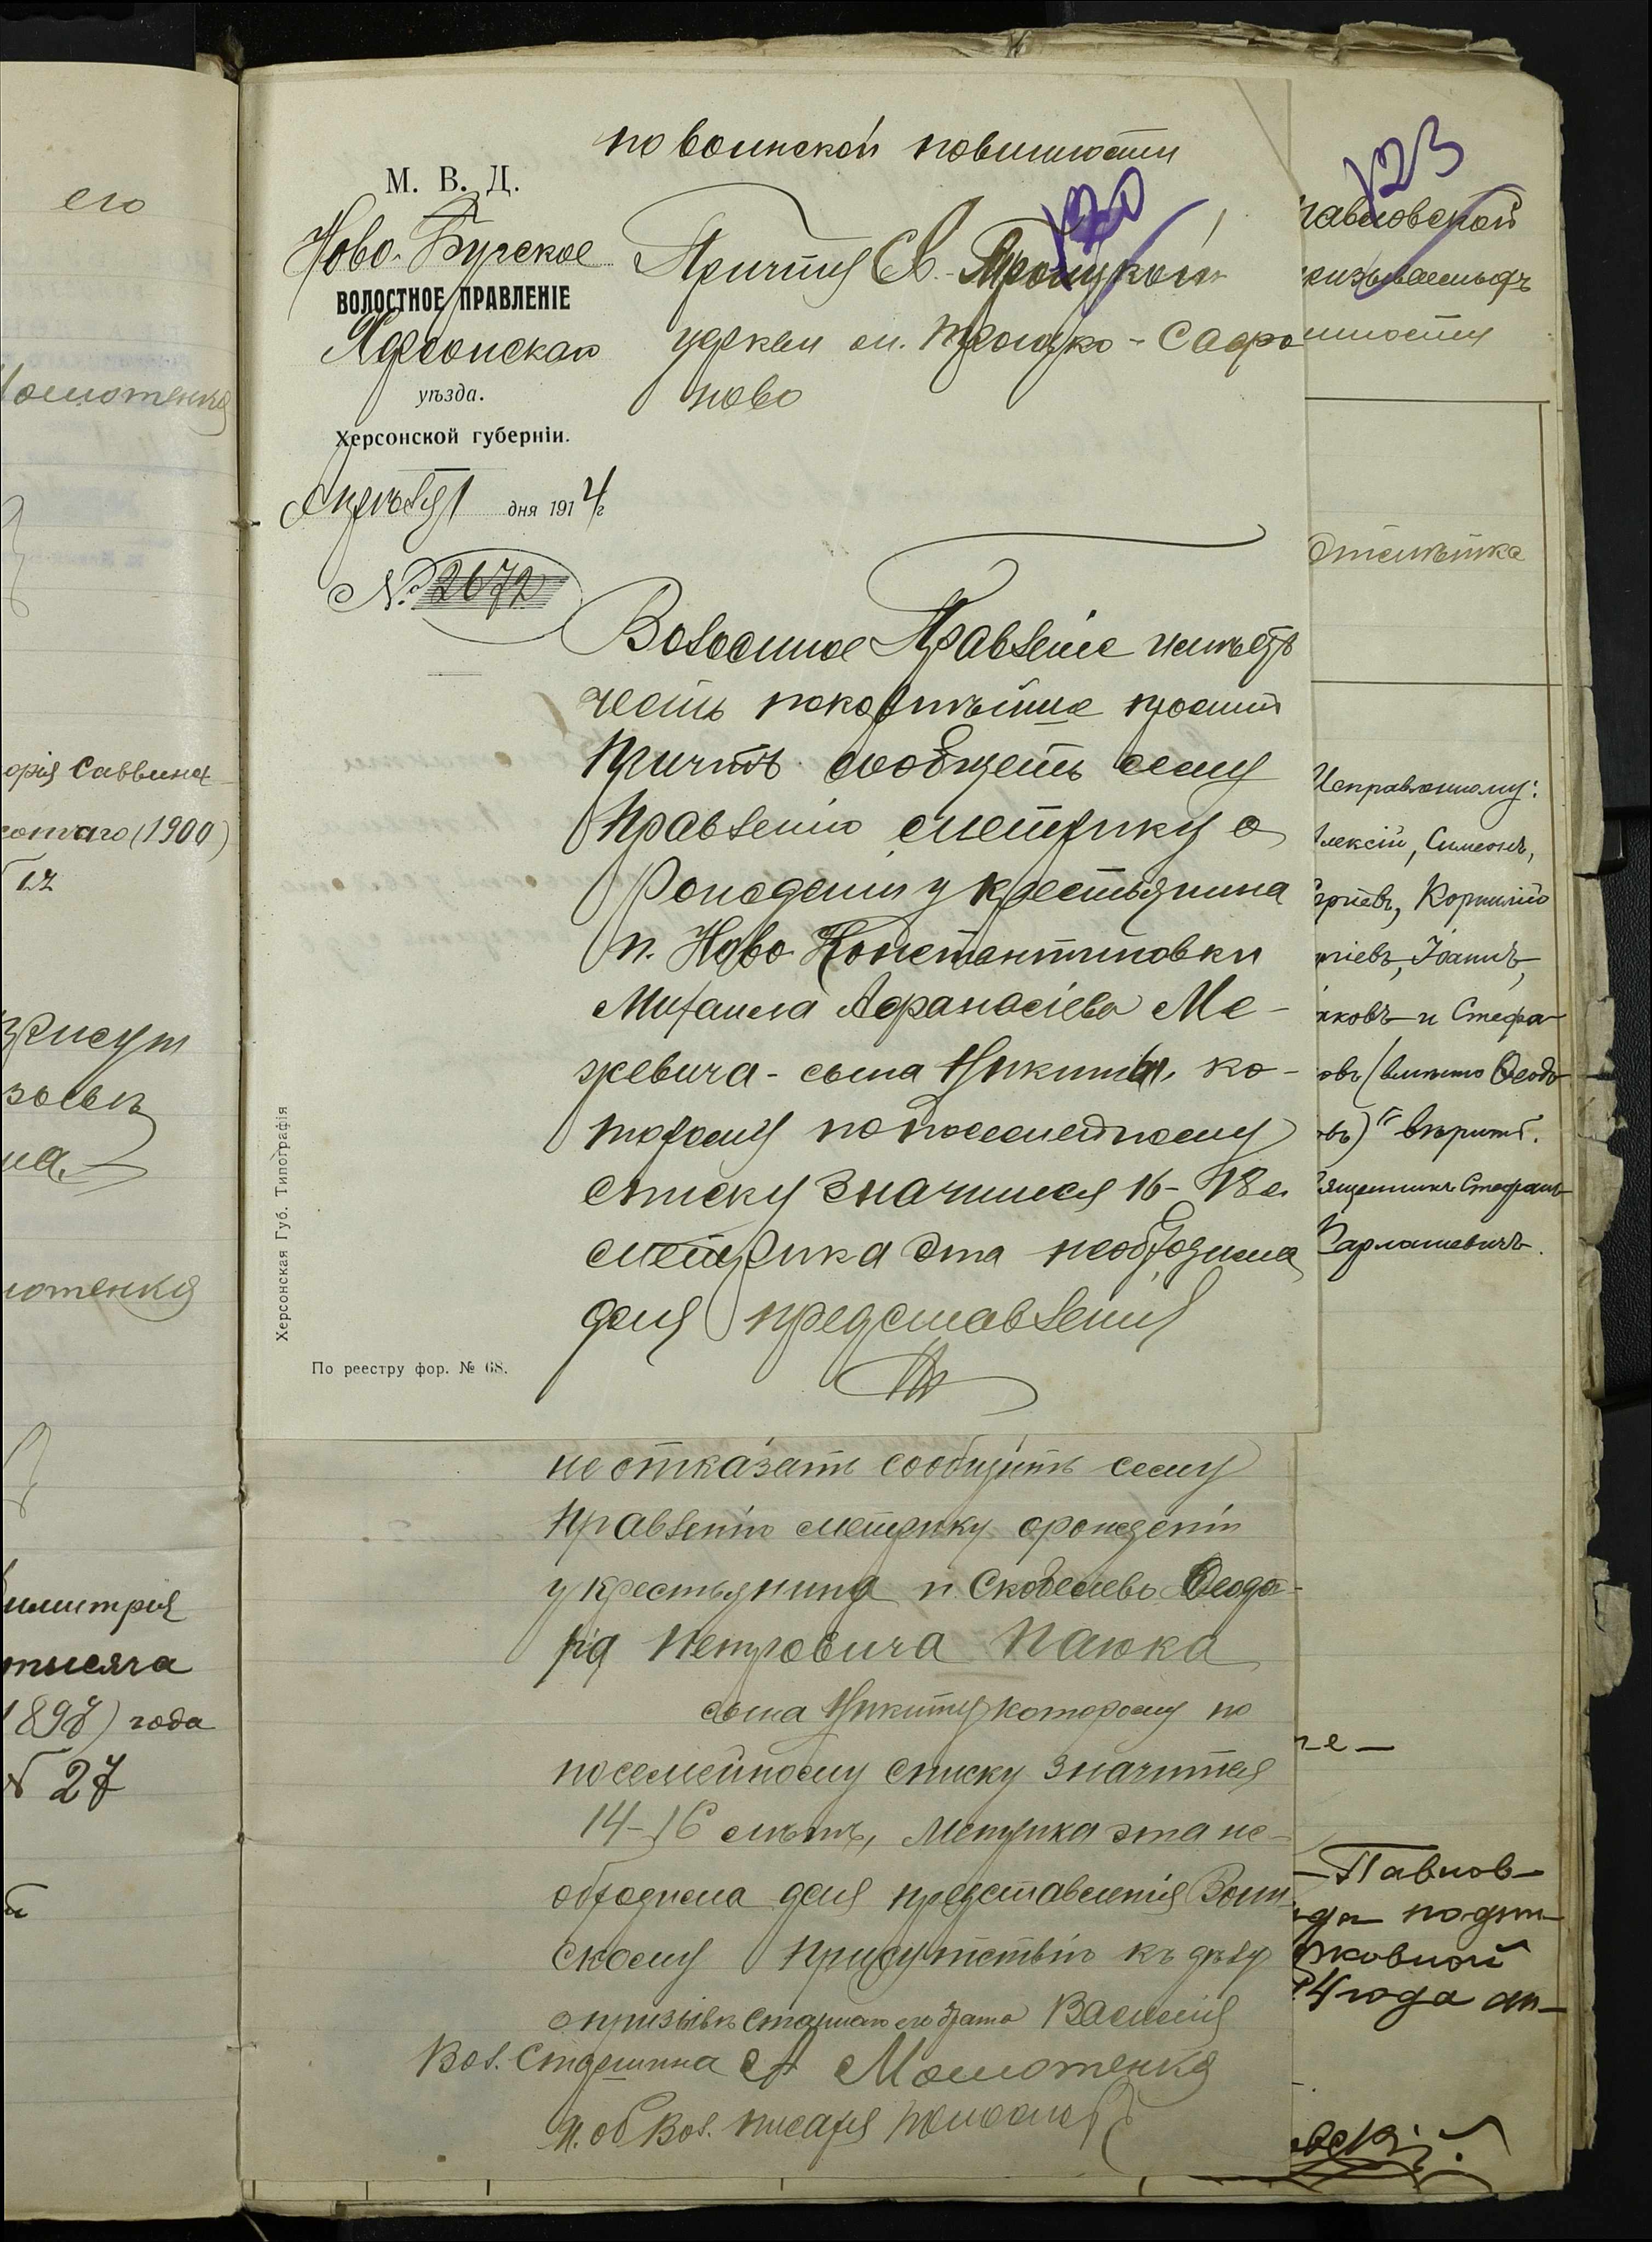 его
Момотенко
орія Саввина
сотаго (1900)
12
зоветъ
на.
мотенко
имитрія
тысяча
1898) года
№ 27
по воинской повинности
М. В. Д.
Ново-Бугское
ВОЛОСТНОЕ ПРАВЛЕНІЕ
Херсонскаго
уѣзда.
Херсонской губерніи.
Апрѣля 1 дня 1914 г
№ 2672
120
Причту Св. Троицкой
церкви м. Троицко-Сафро
ново
Волостное Правленіе имѣетъ
честь покорнѣйше просить
Причтъ сообщить сему
Правленію метрику о
Рождении у крестьянина
п. Ново Константиновки
Михаила Афанасіева Ме-
жевича - сына Никиты, ко-
торому по посемейному
списку значится 16-18 л.
метрика эта необходима
для представленія
Херсонская Губ. Типографія
По реестру фор. № 68.
не отказать сообщить сему
Правленію метрику о рожденіи
у крестьянина п. Скобелево Ѳеодо-
рія Петровича Паюка
сына Никиту которому по
посемейному списку значится
14-16 лѣтъ, метрика эта не-
обходима для представленія Воин-
скому Присутствію къ дѣлу
о призывѣ старшаго его брата Василія
Вол. Старшина А Момотенко
И. об Вол. писаря
123
павловской
ризываемыхъ
инности
Отмѣтка
Исправленному:
Алексій, Симеонъ,
Корнилій
гіевъ, Іоаннъ,
яковъ и Стефа-
овъ (вмѣсто Ѳеодо
овъ)" вѣрить.
Священникъ Стефанъ
Варлашевичъ.
е —
Павлов-
рковной
14 года ап-
овскій.